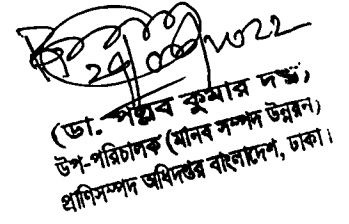 ২০২২
(ডা. পল্লব কুমার দত্ত)
উপ-পরিচালক (মানব সম্পদ উন্নয়ন)
প্রাণিসম্পদ অধিদপ্তর বাংলাদেশ, ঢাকা।